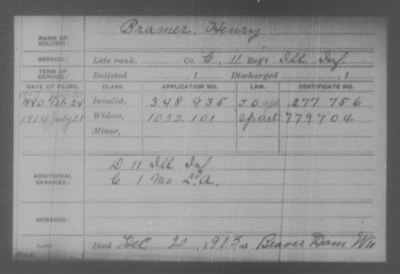 Bramer, Henry
NAME OF SOLDIER:
SERVICE: Late rank, Co. C, 11 Reg't Ill Inf.
TERM OF SERVICE: Enlisted , 1 Discharged , 1
DATE OF FILING. CLASS. APPLICATION NO. LAW. CERTIFICATE NO.
1880 Feb 24 Invalid, 348 935 277 756
1914 July 21 Widow, 1032 101 779704
Minor,
D 11 Ill Inf
ADDITIONAL SERVICES: C 1 Mo L.A.
REMARKS:
Died Dec 2, 1913, at Beaver Dam Wis